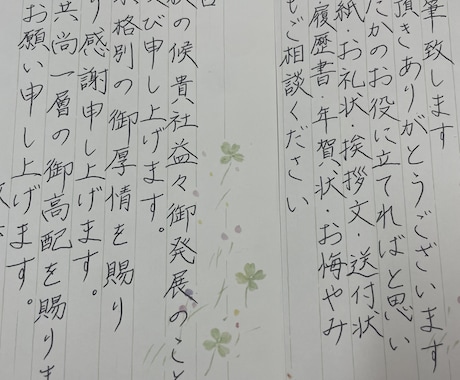 筆致します
頂きありがとうございます
たかのお役に立てればと思い
紙・お礼状・挨拶文・送付状
履歴書・年賀状・お悔やみ
もご相談ください
の候貴社益々御発展のこと
び申し上げます。
格別の御厚情を賜り
り感謝申し上げます。
共尚一層の御高配を賜りま
お願い申し上げます。